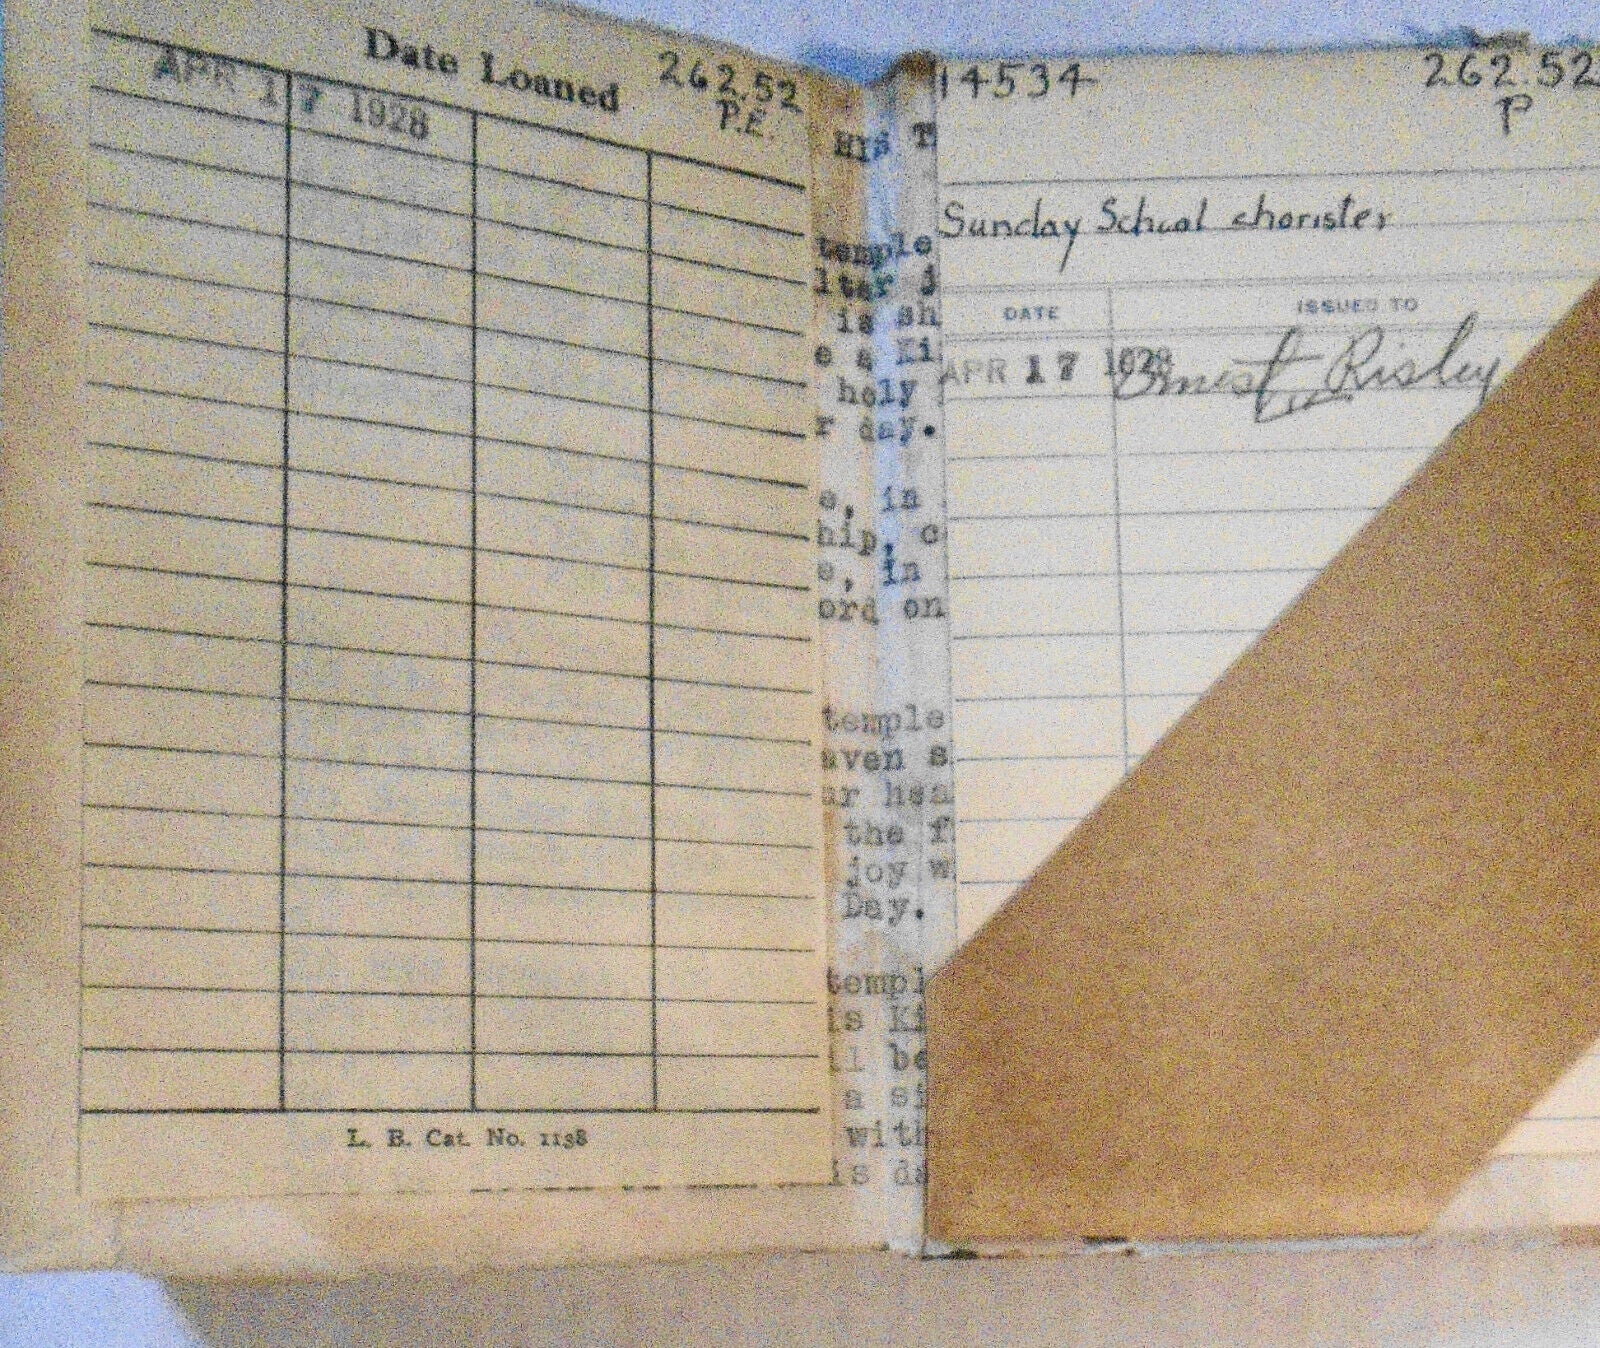 Date Loaned
262.52
P.E.
APR 17 1928
L. B. Cat. No. 1138
HIS T
temple
ltar j
is sh
e a Ki
holy
r day.
e, in
hip, c
e, in
ord on
temple
aven s
ar hea
the f
joy w
Day.
templ
is Ki
ll be
a si
with
is da
14534
262.52
P
Sunday School chorister
DATE ISSUED TO
APR 17 1928 Ernest Risley